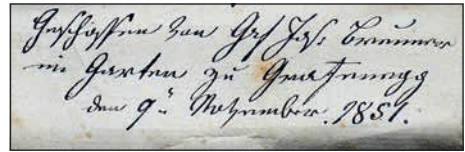 Geschossen von Gf Jos. Breunner
im Garten zu Grafenegg
den 9ᵗ November 1851.